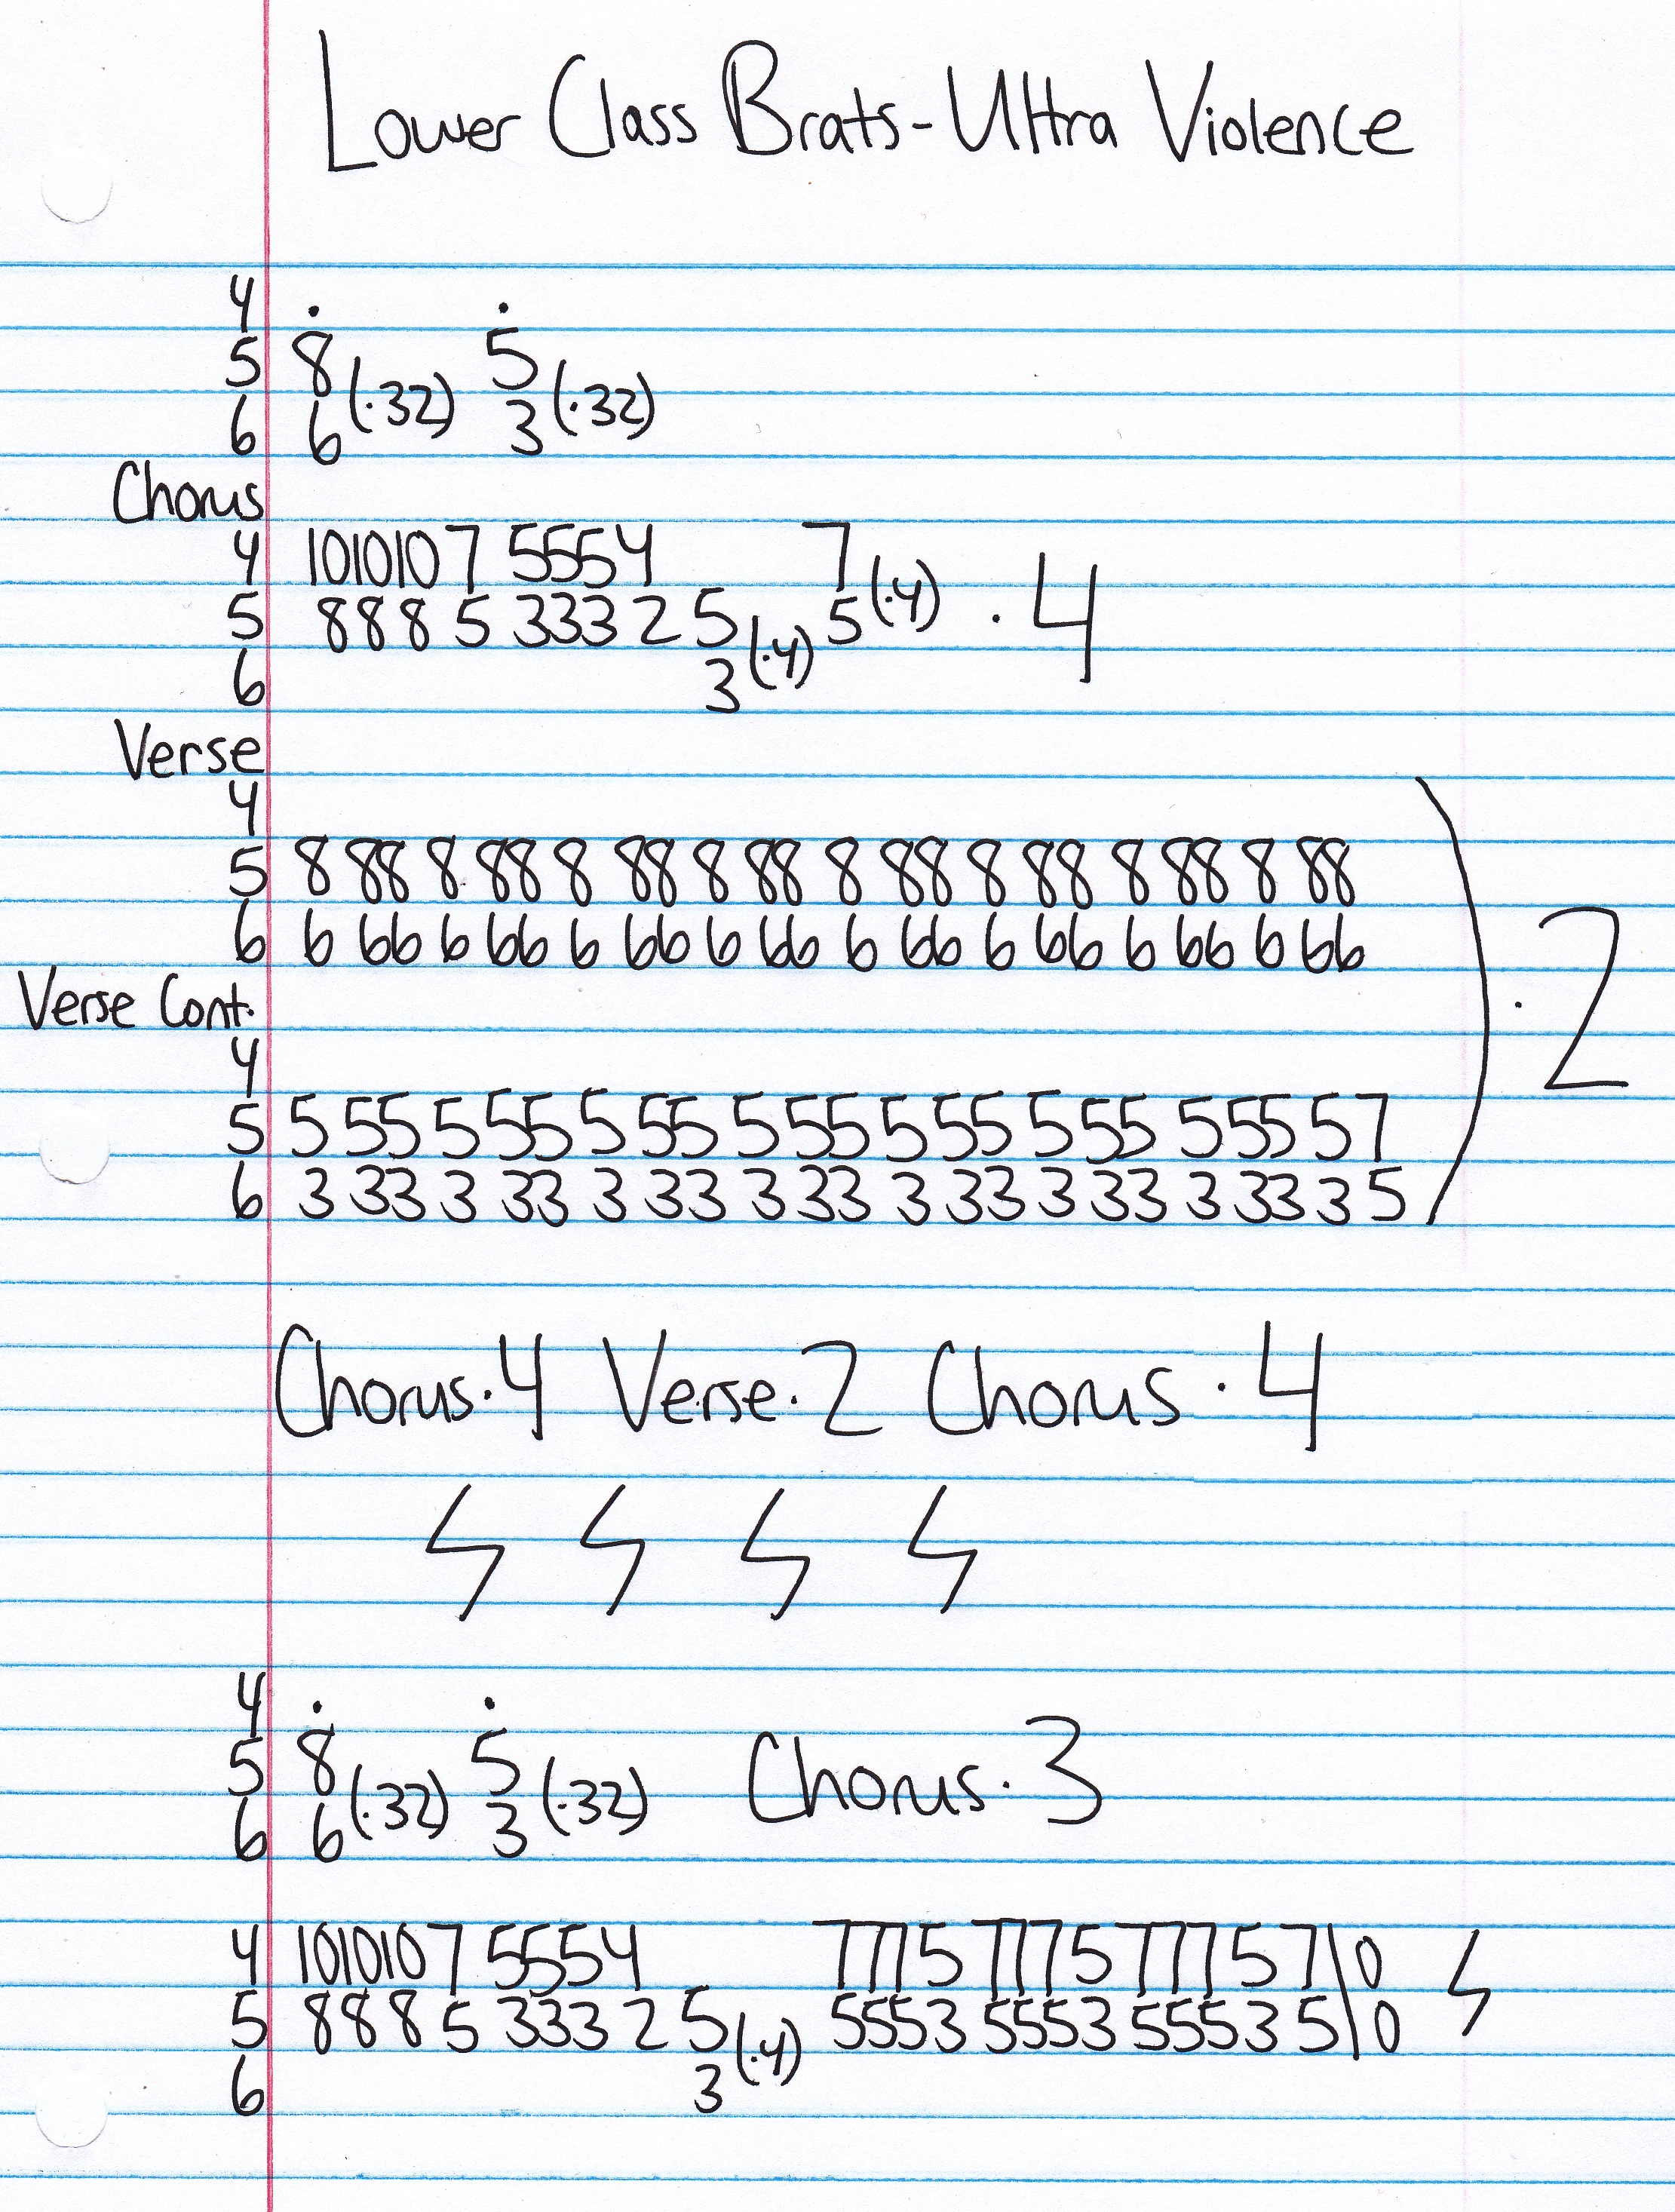 Lower Class Brats-Ultra Violence
4 . .
5 8 5
6 6 (.32) 3 (.32)
Chorus
4 10 10 10 7 5 5 5 4 7
5 8 8 8 5 3 3 3 2 5 5 (.4) . 4
6 3 (.4)
Verse
4
5 8 88 8 88 8 88 8 88 8 88 8 88 8 88 8 88
6 6 66 6 66 6 66 6 66 6 66 6 66 6 66 6 66
) . 2
Verse Cont.
4
5 5 55 5 55 5 55 5 55 5 55 5 55 5 55 5 7
6 3 33 3 33 3 33 3 33 3 33 3 33 3 33 3 5
Chorus . 4 Verse . 2 Chorus . 4
4 . .
5 8 5 Chorus . 3
6 6 (.32) 3 (.32)
4 10 10 10 7 5 5 5 4 7 7 7 5 7 7 7 5 7 7 7 5 7 \ 0
5 8 8 8 5 3 3 3 2 5 5 5 5 3 5 5 5 3 5 5 5 3 5 \ 0
6 3 (.4)